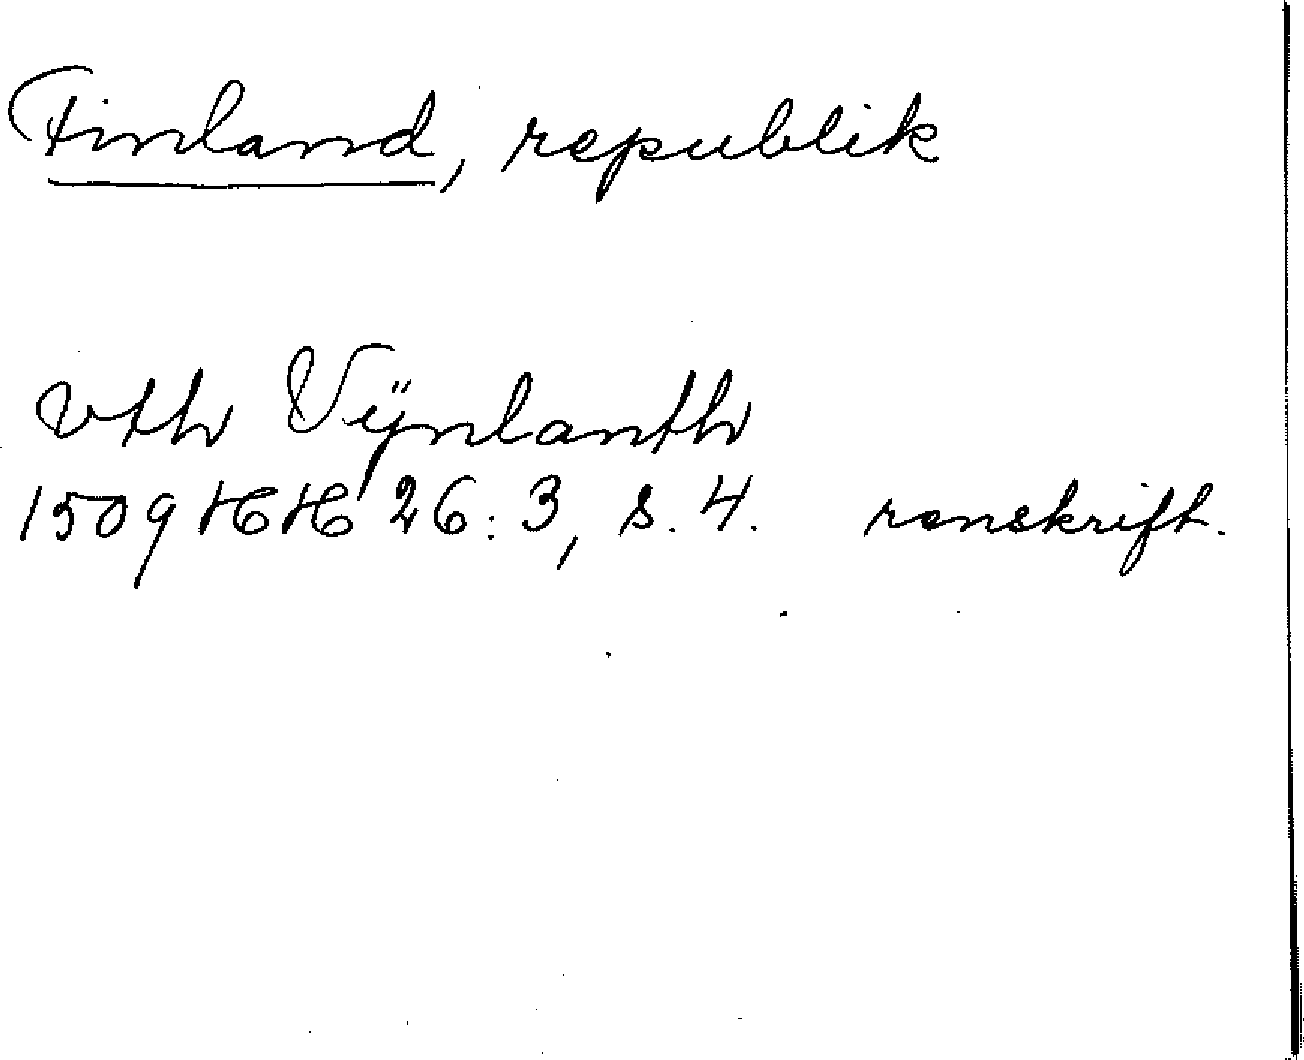 Finland, republik
vth Vÿnlanth
1509 HH 26:3, s. 4. renskrift.